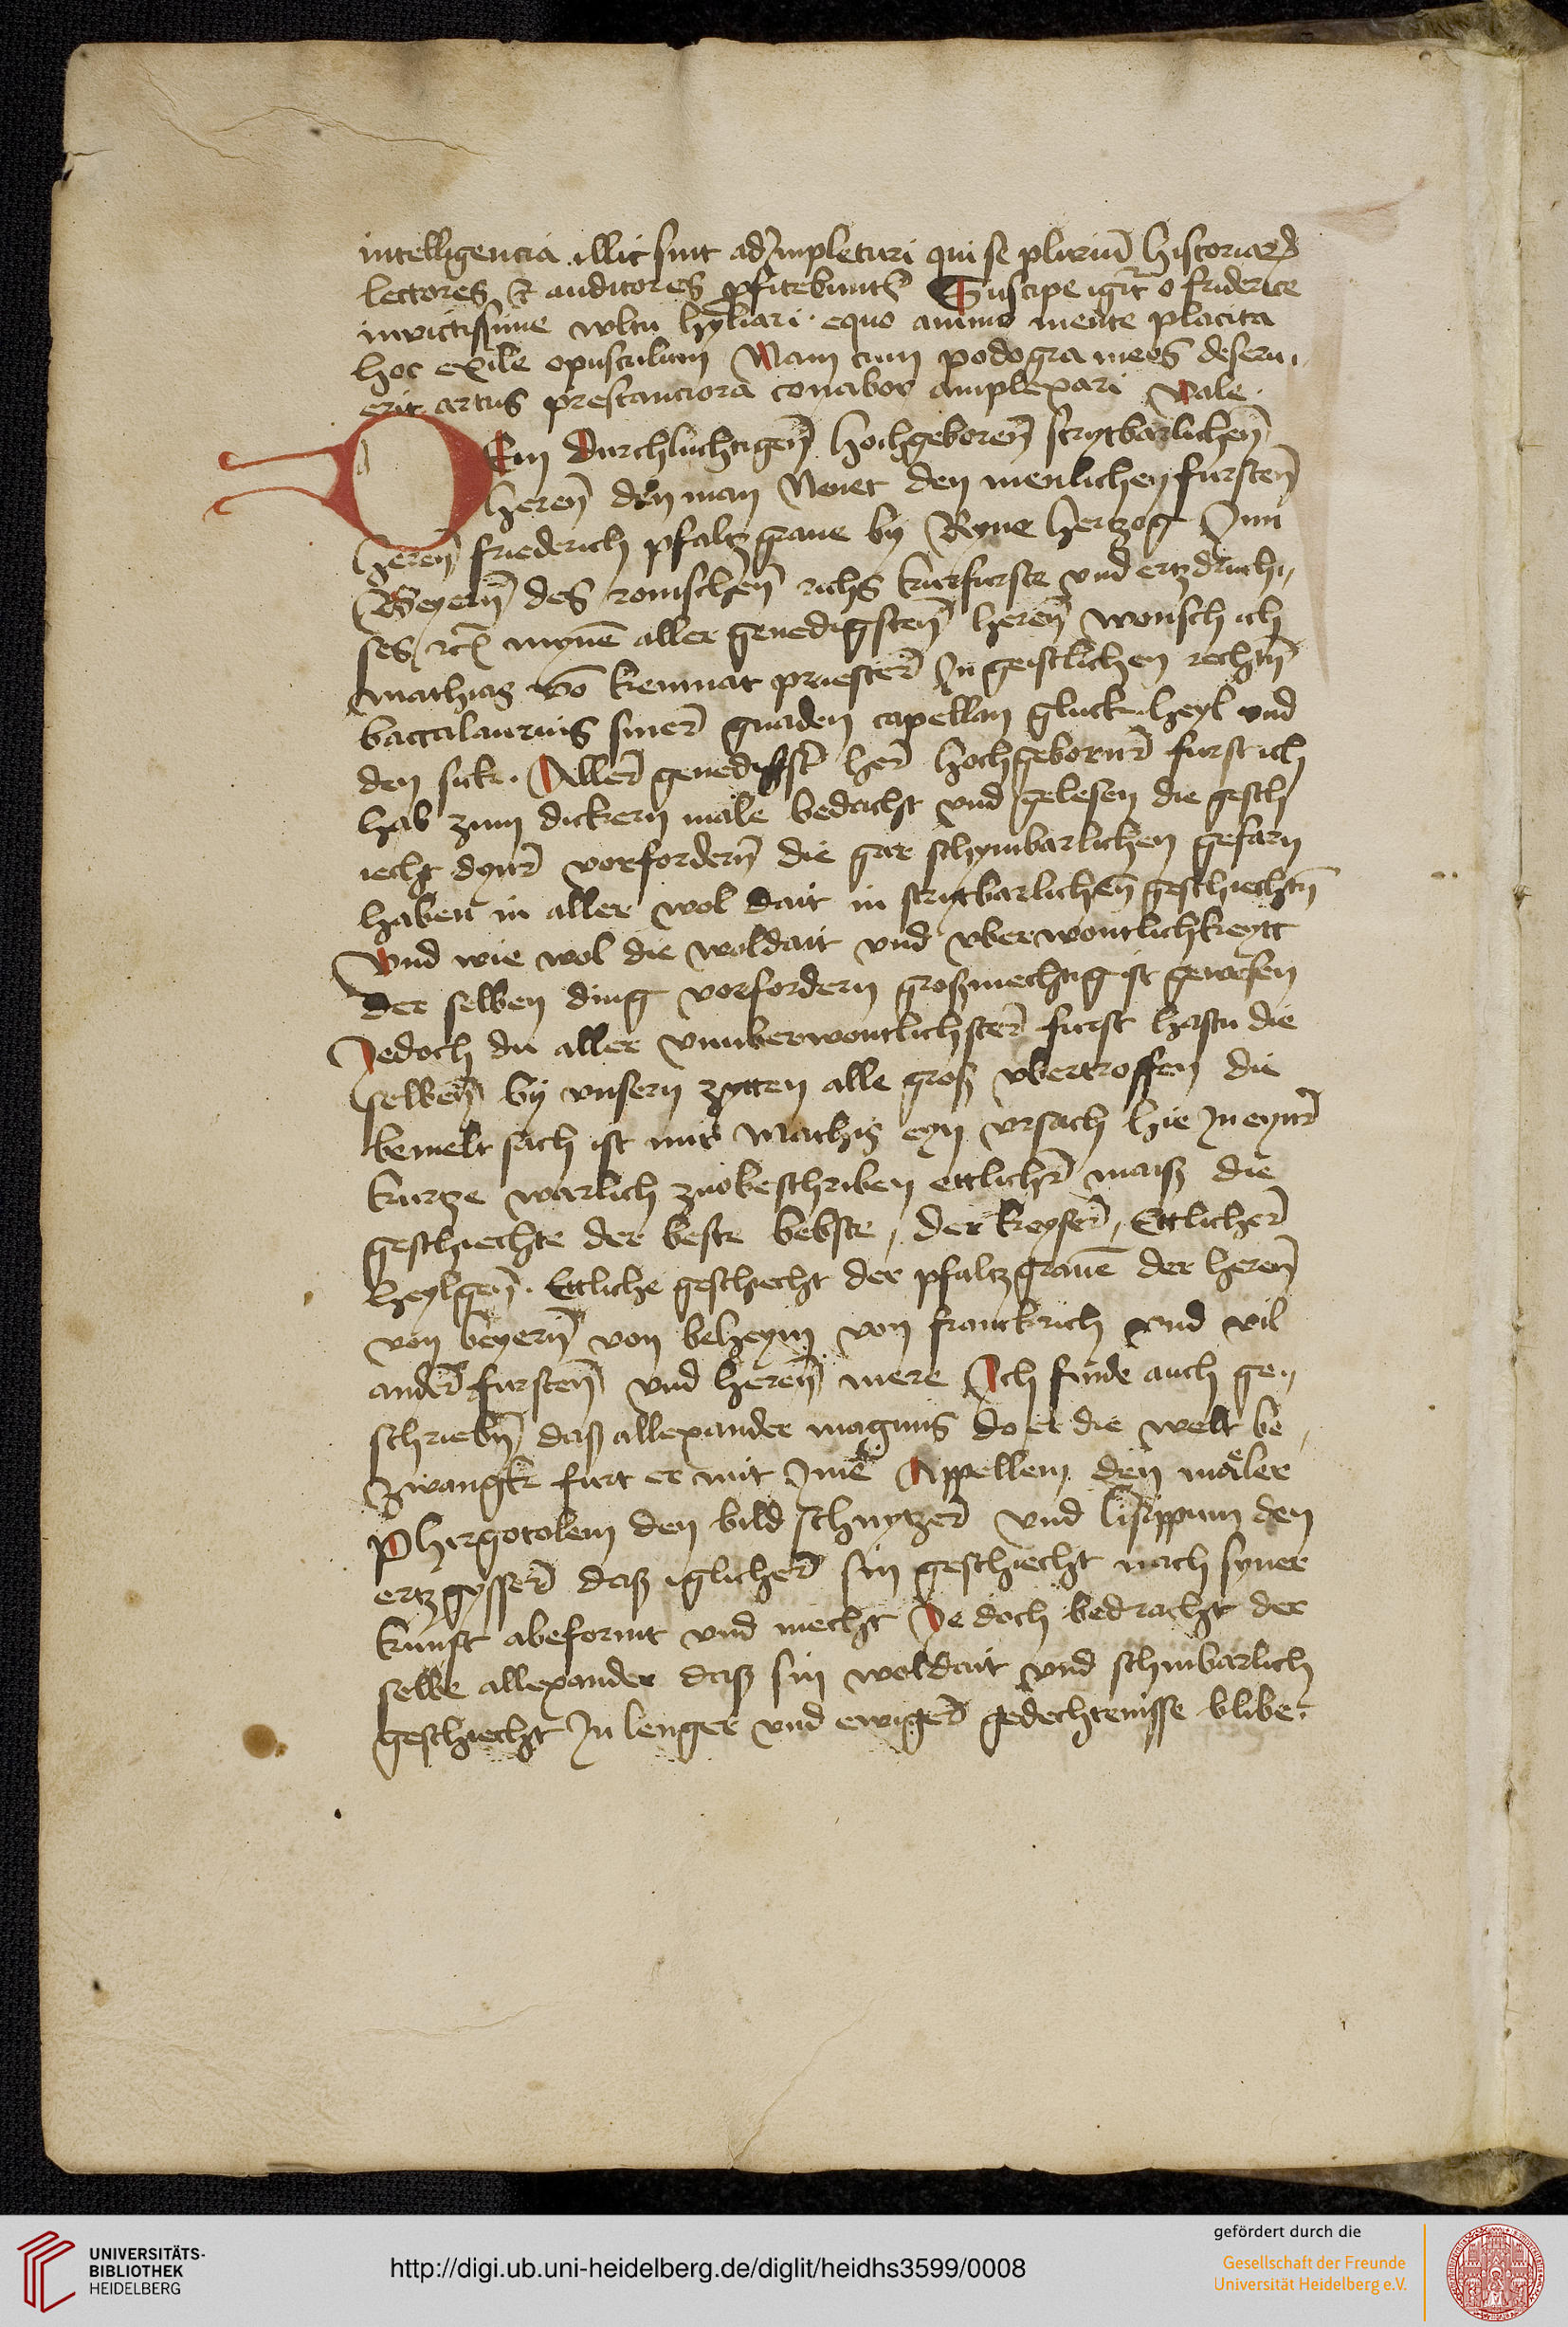 intelligencia illic sint adJmpleturi qui se pluriu͞m historiaꝝ
lectores et auditores ꝓfitebunt͛ Suscipe igit͛ o friderice
invictissime wltu hylari · equo animo mente placita
hoc exile opusculum Nam cum podogra meos deseru„
erit artus prestanciora conabor amplexari vale ·
DEm durchluchtigen̄ hochgeboren̄ strytbarlichen̄
heren̄ den man Nenet den menlichen fursten̄
heren̄ friederich pfaltzgraue by Ryne hertzog Jnn
Beyern̄ des romischen̄ richs kurfurste vnd ertzdruch„
ses ꝛc̄ mynē aller genedigsten̄ heren̄ wonsch ich
Mathias vō kemnat priester͛ Jn geistlichen rechtn̄
baccalaurius siner͛ gnaden capellan gluck heyl vnd
den sick · Aller͛ genedigst͛ her͛ hochgeborner͛ furst ich
hab zum dickern male bedacht vnd gelesen die gesch
iecht dyner͛ vorfordern̄ die gar schynbarlichen gefarn
haben in aller wol dait in strytbarlichen̄ geschiechtn̄
Vnd wie wol die woldait vnd vberwontlichkeytt
der selben ding vorfordern großmechtig ist gewesen
Jedoch du aller vnuberwontlichster͛ furst hastu die
selben̄ by vnsern zytten alle groß vbertroffen die
bemelt sach ist mir Mathis eyn vrsach hie Jn eyner͛
kurtze warlich zuobeschriben ettlicher͛ maiß die
geschiechte der beste bebste, der keyser͛, Ettlicher͛
heylgen̄ · Ettliche geschiecht der pfaltzgrauē der heren̄
von beyern̄ von beheym von franckrich vnd vil
ander͛ fursten̄ vnd heren̄ mere Ich finde auch ge„
schriebn̄ daß allexander magnus do er die welt be„
zwangk furt er mit Jme Appellem den maͤler
Phirgotolem den bild schnytzer͛ vnd lisippum den
ertzgysser͛ daß iglicher͛ sin geschiecht nach syner
kunst abeformt vnd mecht Je doch bedracht der
selbe allexander daß sin woldait vnd schinbarlich
geschiecht Jn lenger vnd ewiger͛ gedechtenisse blibe ·
UNIVERSITÄTS-
BIBLIOTHEK
HEIDELBERG
http://digi.ub.uni-heidelberg.de/diglit/heidhs3599/0008
gefördert durch die
Gesellschaft der Freunde
Universität Heidelberg e.V.